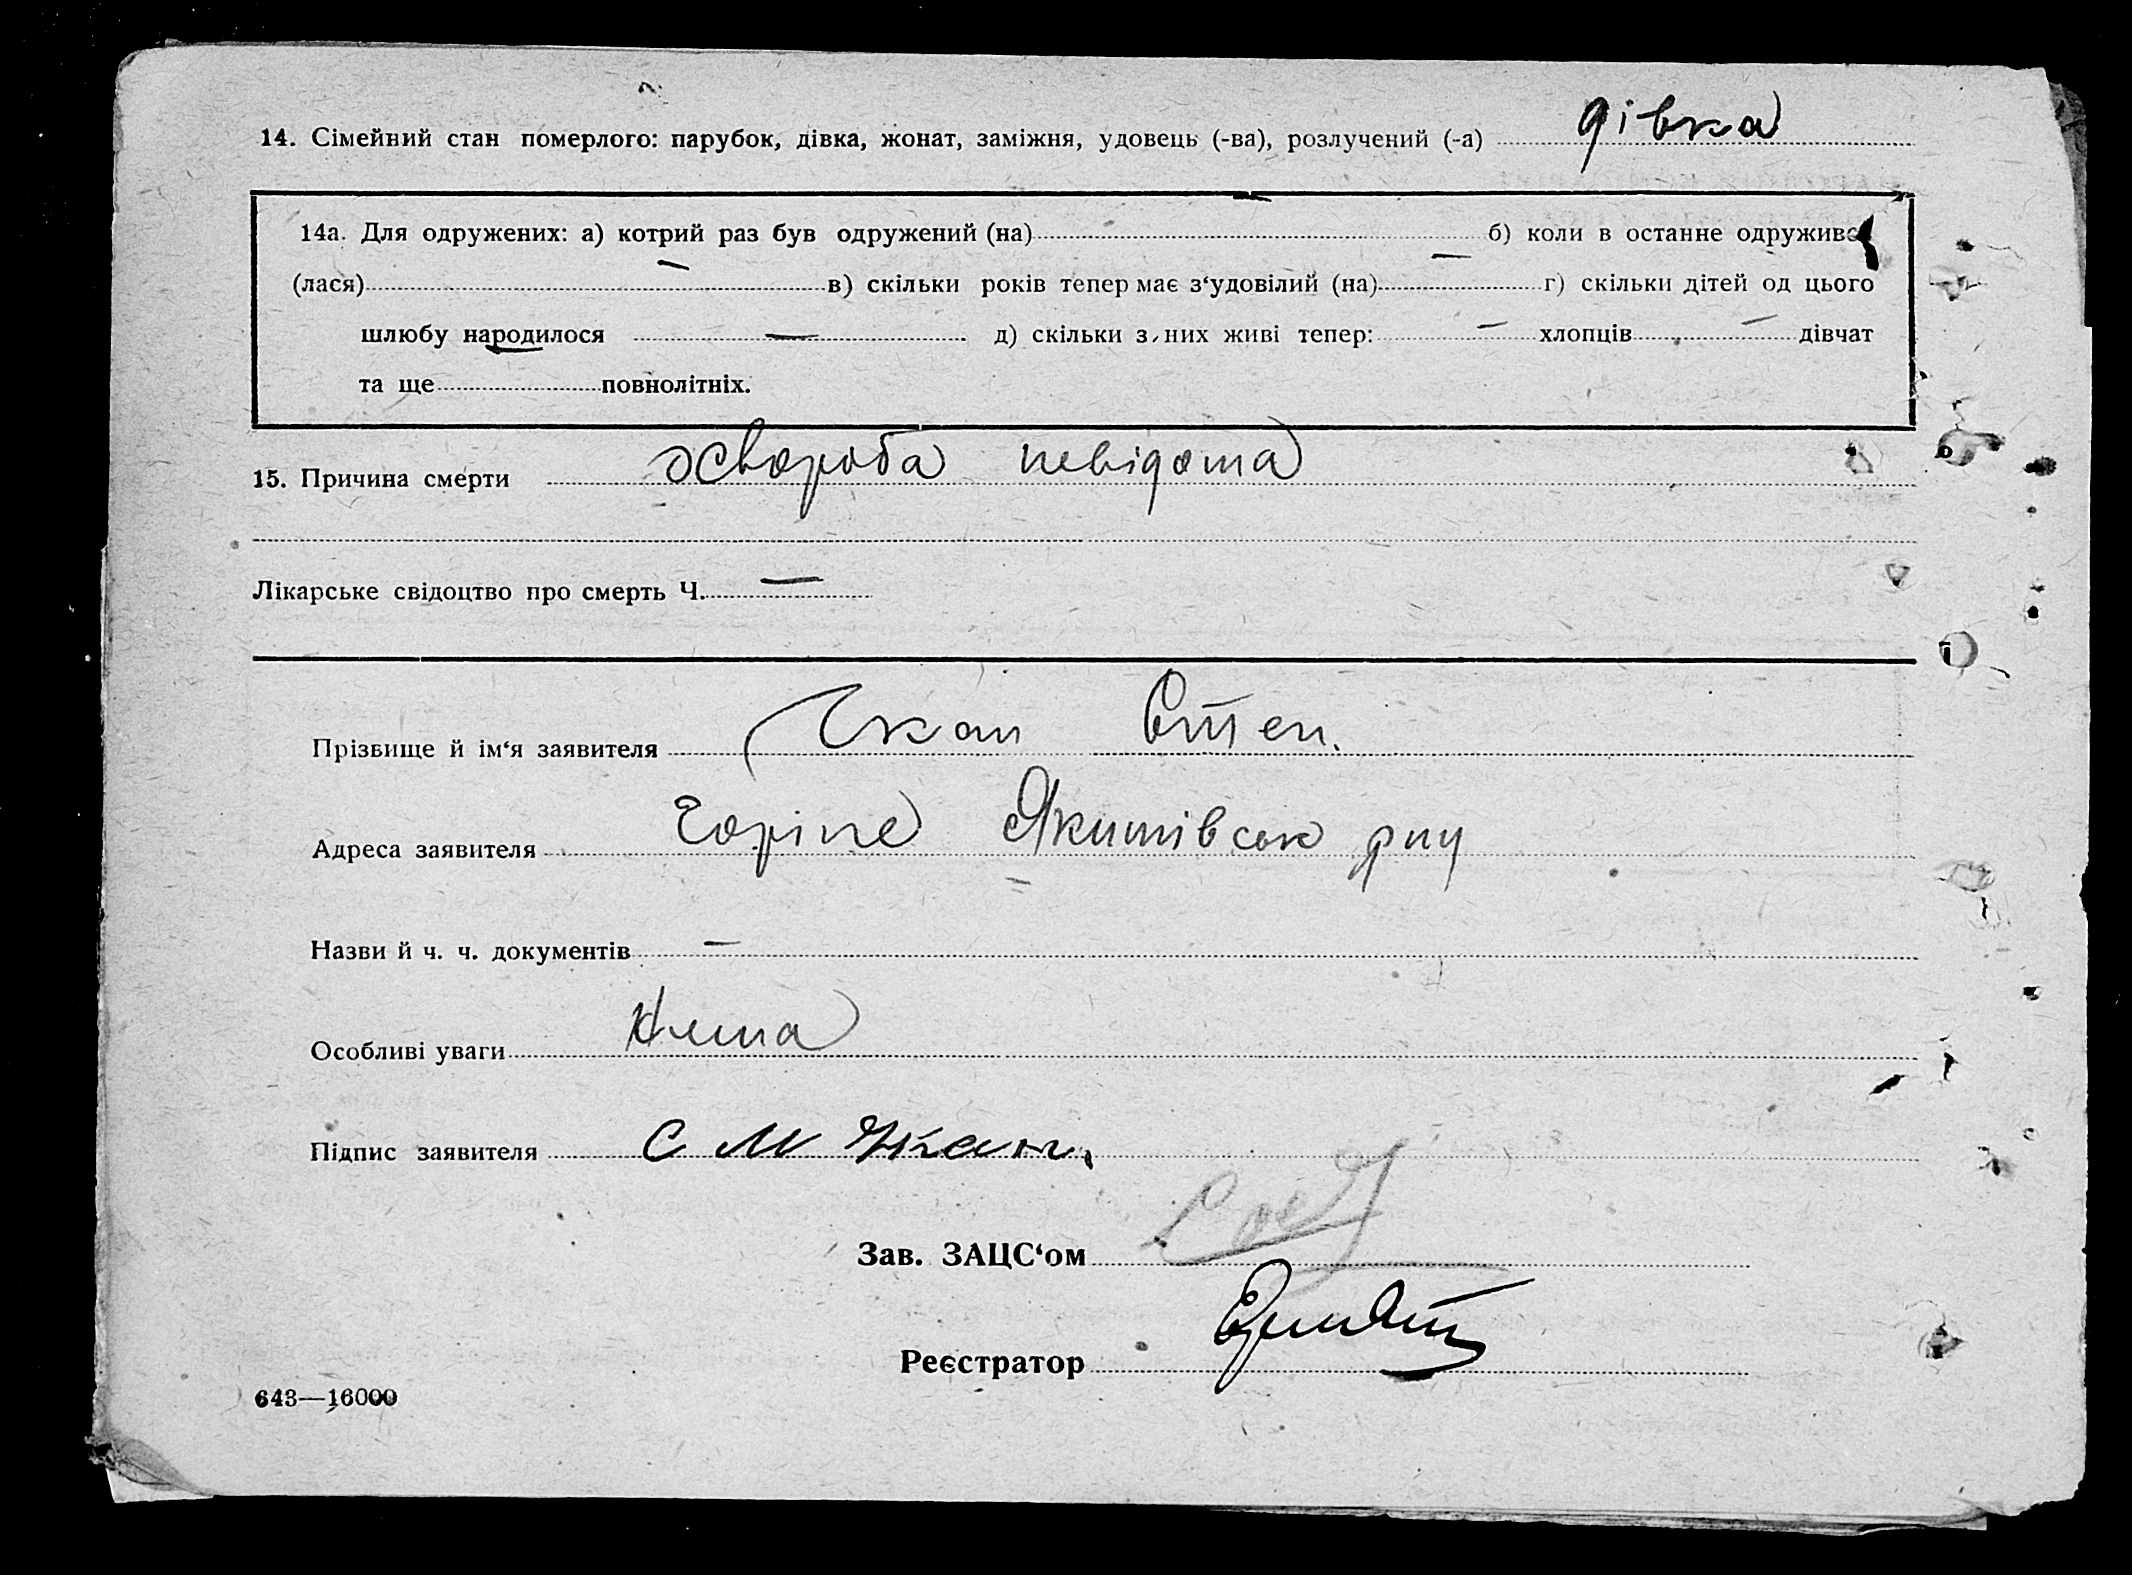 14. Сімейний стан померлого: парубок, дівка, жонат, заміжня, удовець (-ва), розлучений (-а) дівка
14а. Для одружених: а) котрий раз був одружений (на) — б) коли в останне одружився
(лася) — в) скільки років тепер має з‘удовілий (на) — г) скільки дітей од цього
шлюбу народилося — д) скільки з них живі тепер: — хлопців — дівчат
та ще повнолітніх.
15. Причина смерти хвороба невідома
Лікарське свідоцтво про смерть Ч. —
Прізвище й ім‘я заявителя Степ.
Адреса заявителя Якимівськ рну
Назви й ч. ч. документів —
Особливі уваги Нема
Підпис заявителя С М
Зав. ЗАЦС‘ом
Реєстратор
643—16000